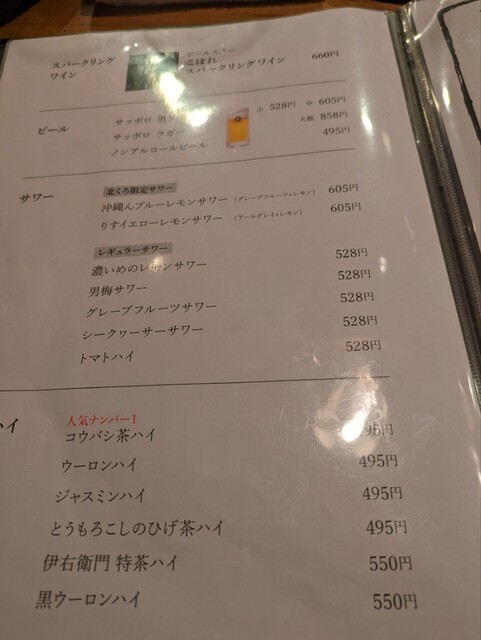 スパークリング
ワイン
ポールスター
こぼれ
スパークリングワイン 660円
ビール
サッポロ 黒 小 528円 中 605円
サッポロ ラガー 大瓶 858円
ノンアルコールビール 495円
サワー
北くろ限定サワー
沖縄んブルーレモンサワー (グレープフルーツ×レモン) 605円
りすイエローレモンサワー (アールグレイ×レモン) 605円
レギュラーサワー
濃いめのレモンサワー 528円
男梅サワー 528円
グレープフルーツサワー 528円
シークヮーサーサワー 528円
トマトハイ 528円
ハイ
人気ナンバー1
コウバシ茶ハイ 95円
ウーロンハイ 495円
ジャスミンハイ 495円
とうもろこしのひげ茶ハイ 495円
伊右衛門 特茶ハイ 550円
黒ウーロンハイ 550円